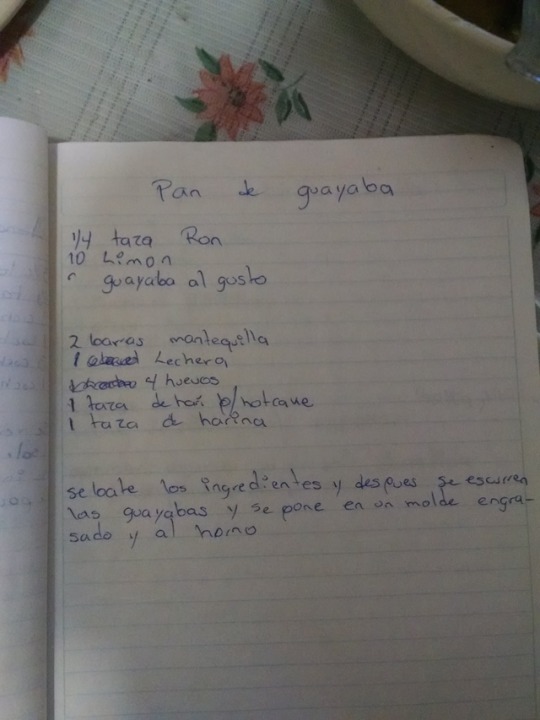 Pan de guayaba
1/4 taza Ron
10 Limon
guayaba al gusto
2 barras mantequilla
1 Lechera
4 huevos
1 taza de hari p/hotcaue
1 taza de harina
se bate los ingredientes y despues se escurren
las guayabas y se pone en un molde engra-
sado y al horno